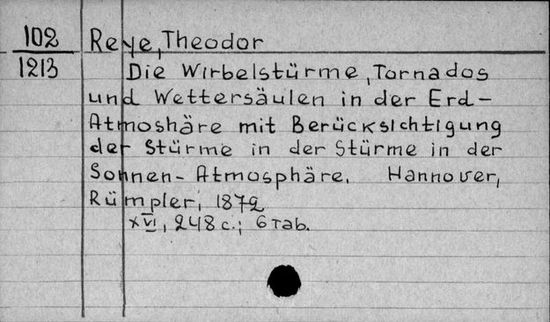 102
1213
Reye, Theodor
Die Wirbelstürme, Tornados
und Wettersäulen in der Erd-
Atmoshäre mit Berücksichtigung
der Stürme in der Stürme in der
Sonnen-Atmosphäre. Hannover,
Rümpler, 1872
XVI, 248 c.; 6 Tab.